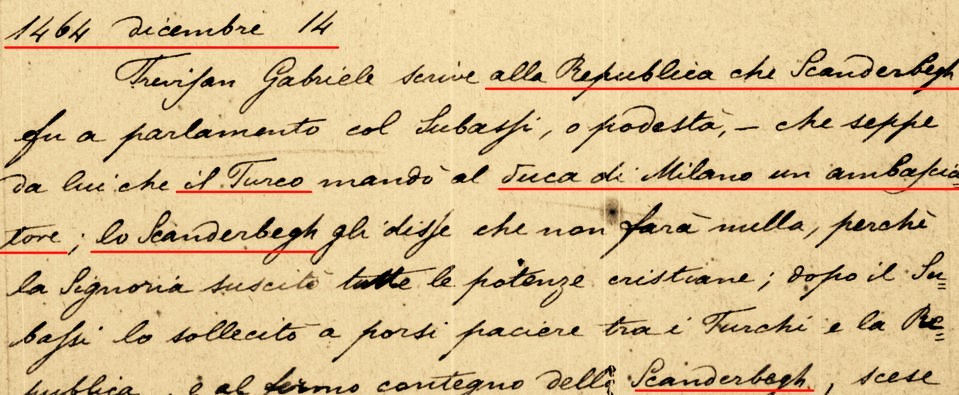 1464 dicembre 14
Trevisan Gabriele scrive alla Republica che Scanderbegh
fu a parlamento col Subassi, o podestà, – che seppe
da lui che il Turco mandò al duca di Milano un ambascia=
tore; lo Scanderbegh gli disse che non farà nulla, perchè
la Signoria suscitò tutte le potenze cristiane; dopo il Su=
bassi lo sollecitò a porsi paciere tra i Turchi e la Re=
pubblica, e al fermo contegno dello Scanderbegh, scese